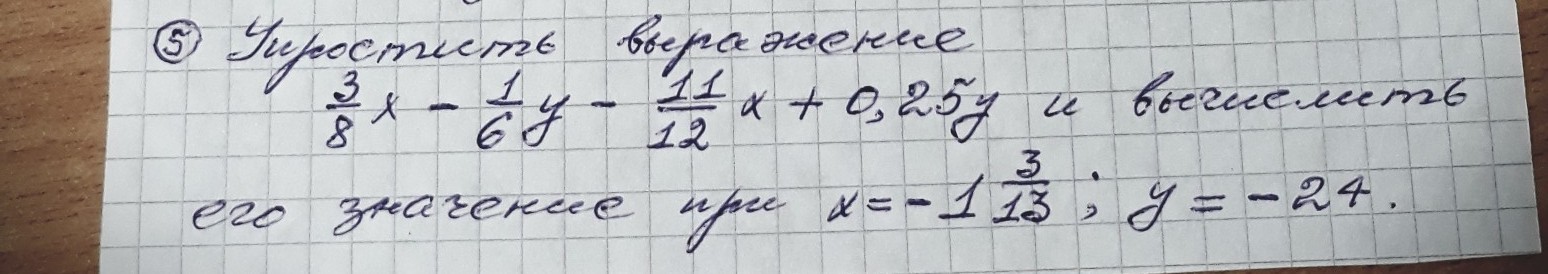 ⑤ Упростить выражение
3/8 x - 1/6 y - 11/12 x + 0,25y и вычислить
его значение при x = -1 3/13 ; y = -24.